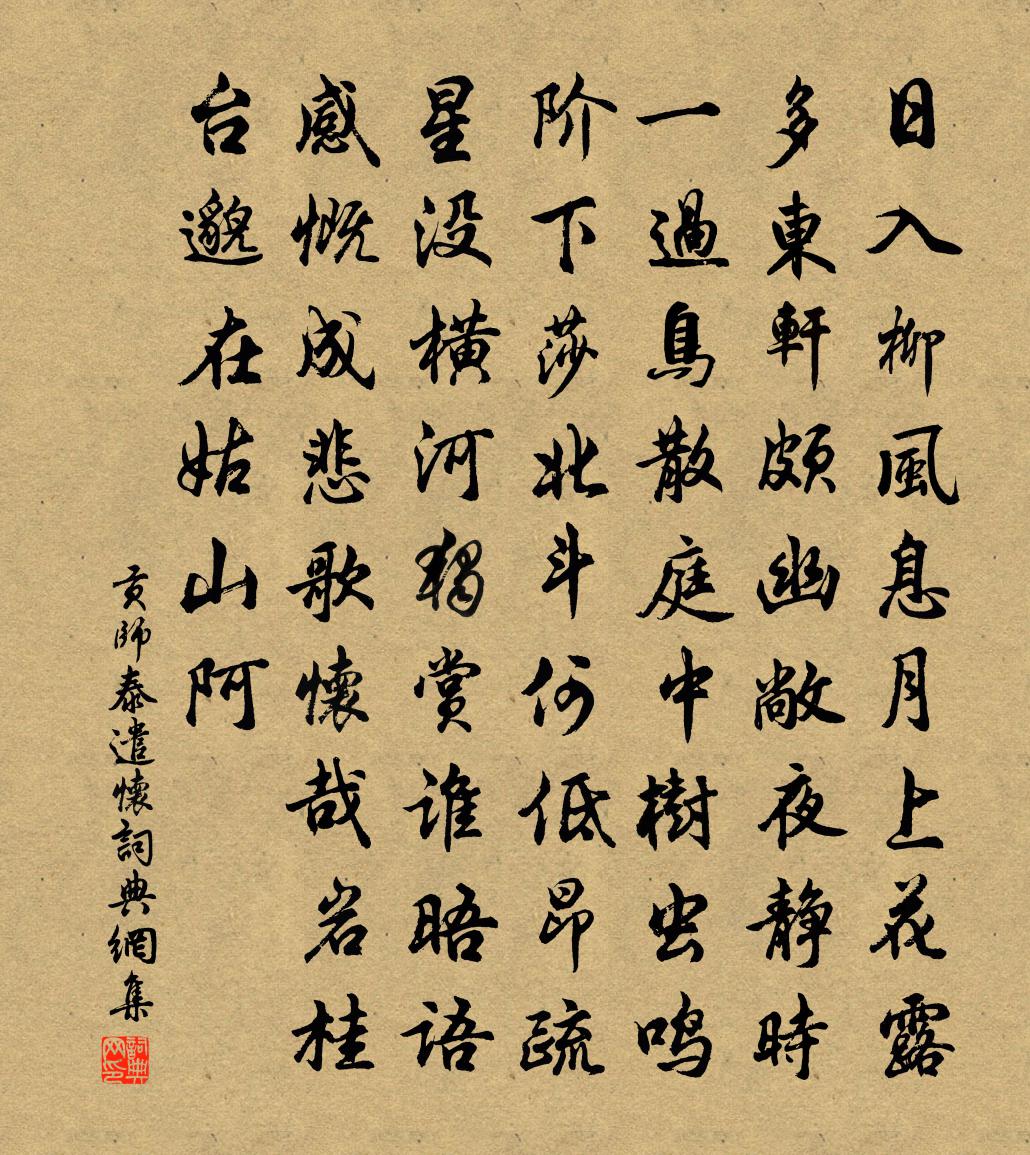 日入柳風息月上花露
多東軒頗幽敞夜静時
一過鳥散庭中樹虫鸣
阶下莎北斗何低昂疏
星没横河獨賞谁晤语
感慨成悲歌懷哉岩桂
台邈在姑山阿
贡师泰遣懷詞典網集
詞典网印